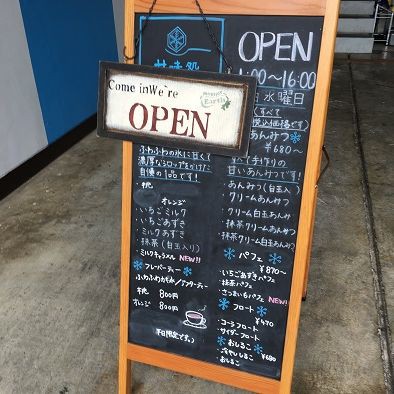 甘味処
OPEN
11:00〜16:00
水曜日
Come in We're
OPEN
Earth
すべて
税込価格です
あんみつ
¥680〜
すべて手作りの
甘いあんみつです!
・あんみつ(白玉入)
・クリームあんみつ
・クリーム白玉あんみつ
・抹茶クリームあんみつ
・抹茶クリーム白玉あんみつ
パフェ
¥870〜
・いちごあずきパフェ
・抹茶パフェ
・さつまいもパフェ NEW!
フロート
¥470
・コーラフロート
・サイダーフロート
おしるこ
・冷やしおしるこ ¥680
・おしるこ
ふわふわの氷に甘くて
濃厚なシロップをかけた
自慢の1品です!
・桃
オレンジ
・いちごミルク
・いちごあずき
・ミルクあずき
・抹茶(白玉入り)
・ミルクキャラメル NEW!!
フレーバーティー
ふわふわかき氷/アフターティー
・桃 800円
・オレンジ 800円
平日限定です。